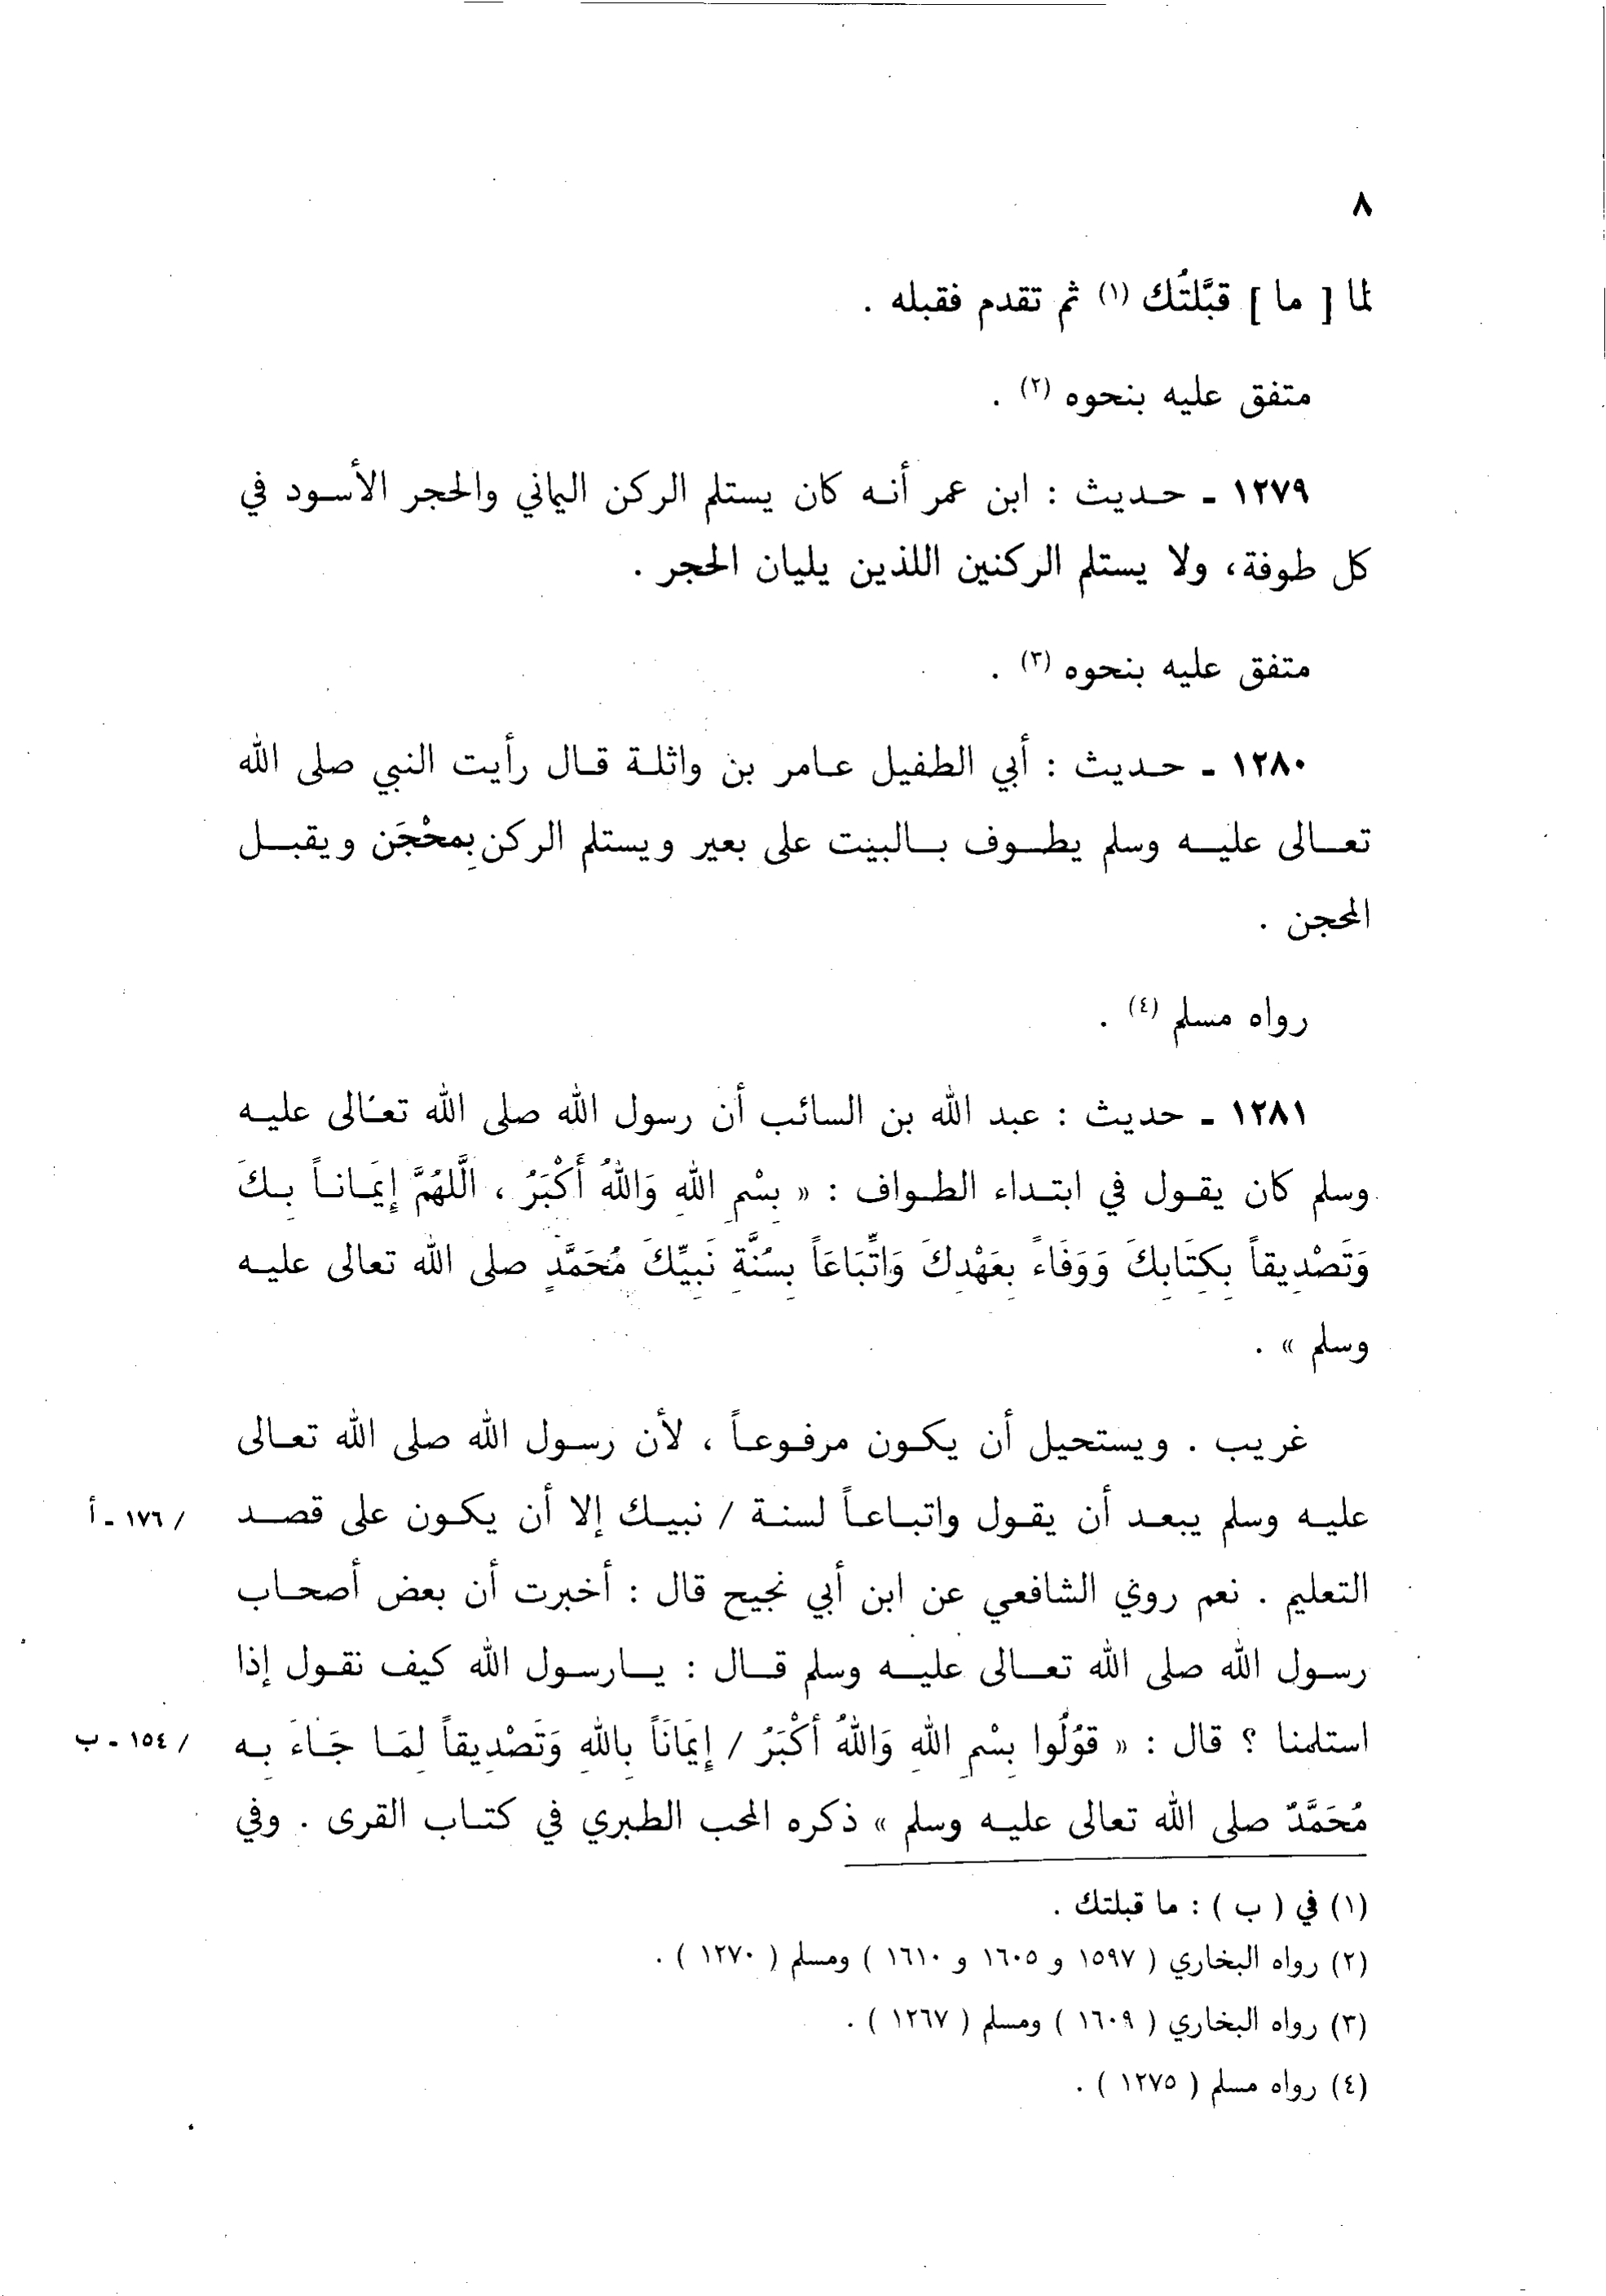 ٨
لما [ ما ] قبَّلتُك (١) ثم تقدم فقبله .
متفق عليه بنحوه (٢) .
١٢٧٩ - حديث : ابن عمر أنه كان يستلم الركن اليماني والحجر الأسود في
كل طوفة، ولا يستلم الركنين اللذين يليان الحجر .
متفق عليه بنحوه (٣) .
١٢٨٠ - حديث : أبي الطفيل عامر بن واثلة قال رأيت النبي صلى الله
تعالى عليه وسلم يطوف بالبيت على بعير ويستلم الركن بِمحْجَن ويقبل
المحجن .
رواه مسلم (٤) .
١٢٨١ - حديث : عبد الله بن السائب أن رسول الله صلى الله تعالى عليه
وسلم كان يقول في ابتداء الطواف : « بِسْمِ اللهِ وَاللهُ أَكْبَرُ ، اللَّهُمَّ إِيَمَاناً بِكَ
وَتَصْدِيقاً بِكِتَابِكَ وَوَفَاءً بِعَهْدِكَ وَاتِّبَاعَاً بِسُنَّةِ نَبِيِّكَ مُحَمَّدٍ صلى الله تعالى عليه
وسلم » .
غريب . ويستحيل أن يكون مرفوعاً ، لأن رسول الله صلى الله تعالى
عليه وسلم يبعد أن يقول واتباعاً لسنة / نبيك إلا أن يكون على قصد / ١٧٦ - أ
التعليم . نعم روي الشافعي عن ابن أبي نجيح قال : أخبرت أن بعض أصحاب
رسول الله صلى الله تعالى عليه وسلم قال : يارسول الله كيف نقول إذا
استلمنا ؟ قال : « قوُلُوا بِسْمِ اللهِ وَاللهُ أَكْبَرُ / إِيَمَانَاً بِاللهِ وَتَصْدِيقاً لِمَا جَاءَ بِه / ١٥٤ - ب
مُحَمَّدٌ صلى الله تعالى عليه وسلم » ذكره المحب الطبري في كتاب القرى . وفي
(١) في ( ب ) : ما قبلتك .
(٢) رواه البخاري ( ١٥٩٧ و ١٦٠٥ و ١٦١٠ ) ومسلم ( ١٢٧٠ ) .
(٣) رواه البخاري ( ١٦٠٩ ) ومسلم ( ١٢٦٧ ) .
(٤) رواه مسلم ( ١٢٧٥ ) .